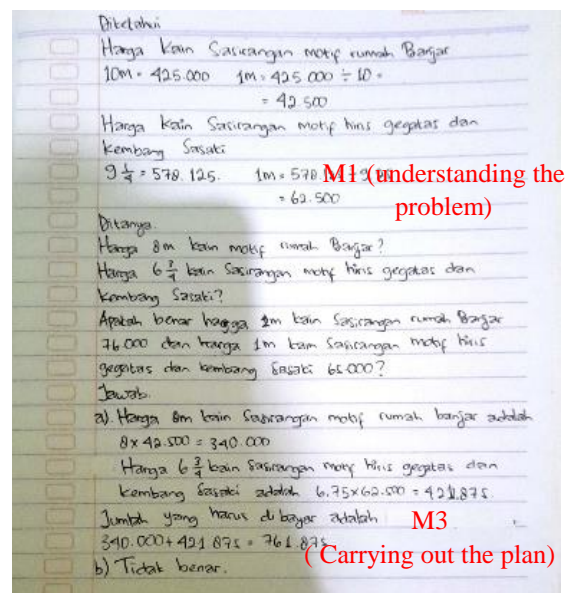 Diketahui
Harga Kain Sasirangan motif rumah Banjar
10m = 425.000 1m = 425.000 ÷ 10 =
= 42.500
Harga Kain Sasirangan motif hiris gegatas dan
Kembang Sasaki
9 1/4 = 578.125. 1m = 578.
= 62.500
M1 (understanding the
problem)
Ditanya.
Harga 8m kain motif rumah Banjar?
Harga 6 3/4 kain Sasirangan motif hiris gegatas dan
Kembang Sasaki?
Apakah benar harga 2m kain Sasirangan rumah Banjar
76.000 dan harga 1m kain Sasirangan motif hiris
gegatas dan kembang Sasaki 65.000?
Jawab.
a). Harga 8m kain Sasirangan motif rumah banjar adalah
8 x 42.500 = 340.000
Harga 6 3/4 kain Sasirangan motif hiris gegatas dan
kembang Sasaki adalah 6.75 x 62.500 = 421.875.
Jumlah yang harus di bayar adalah
340.000 + 421 875 = 761.875
M3
( Carrying out the plan)
b) Tidak benar.